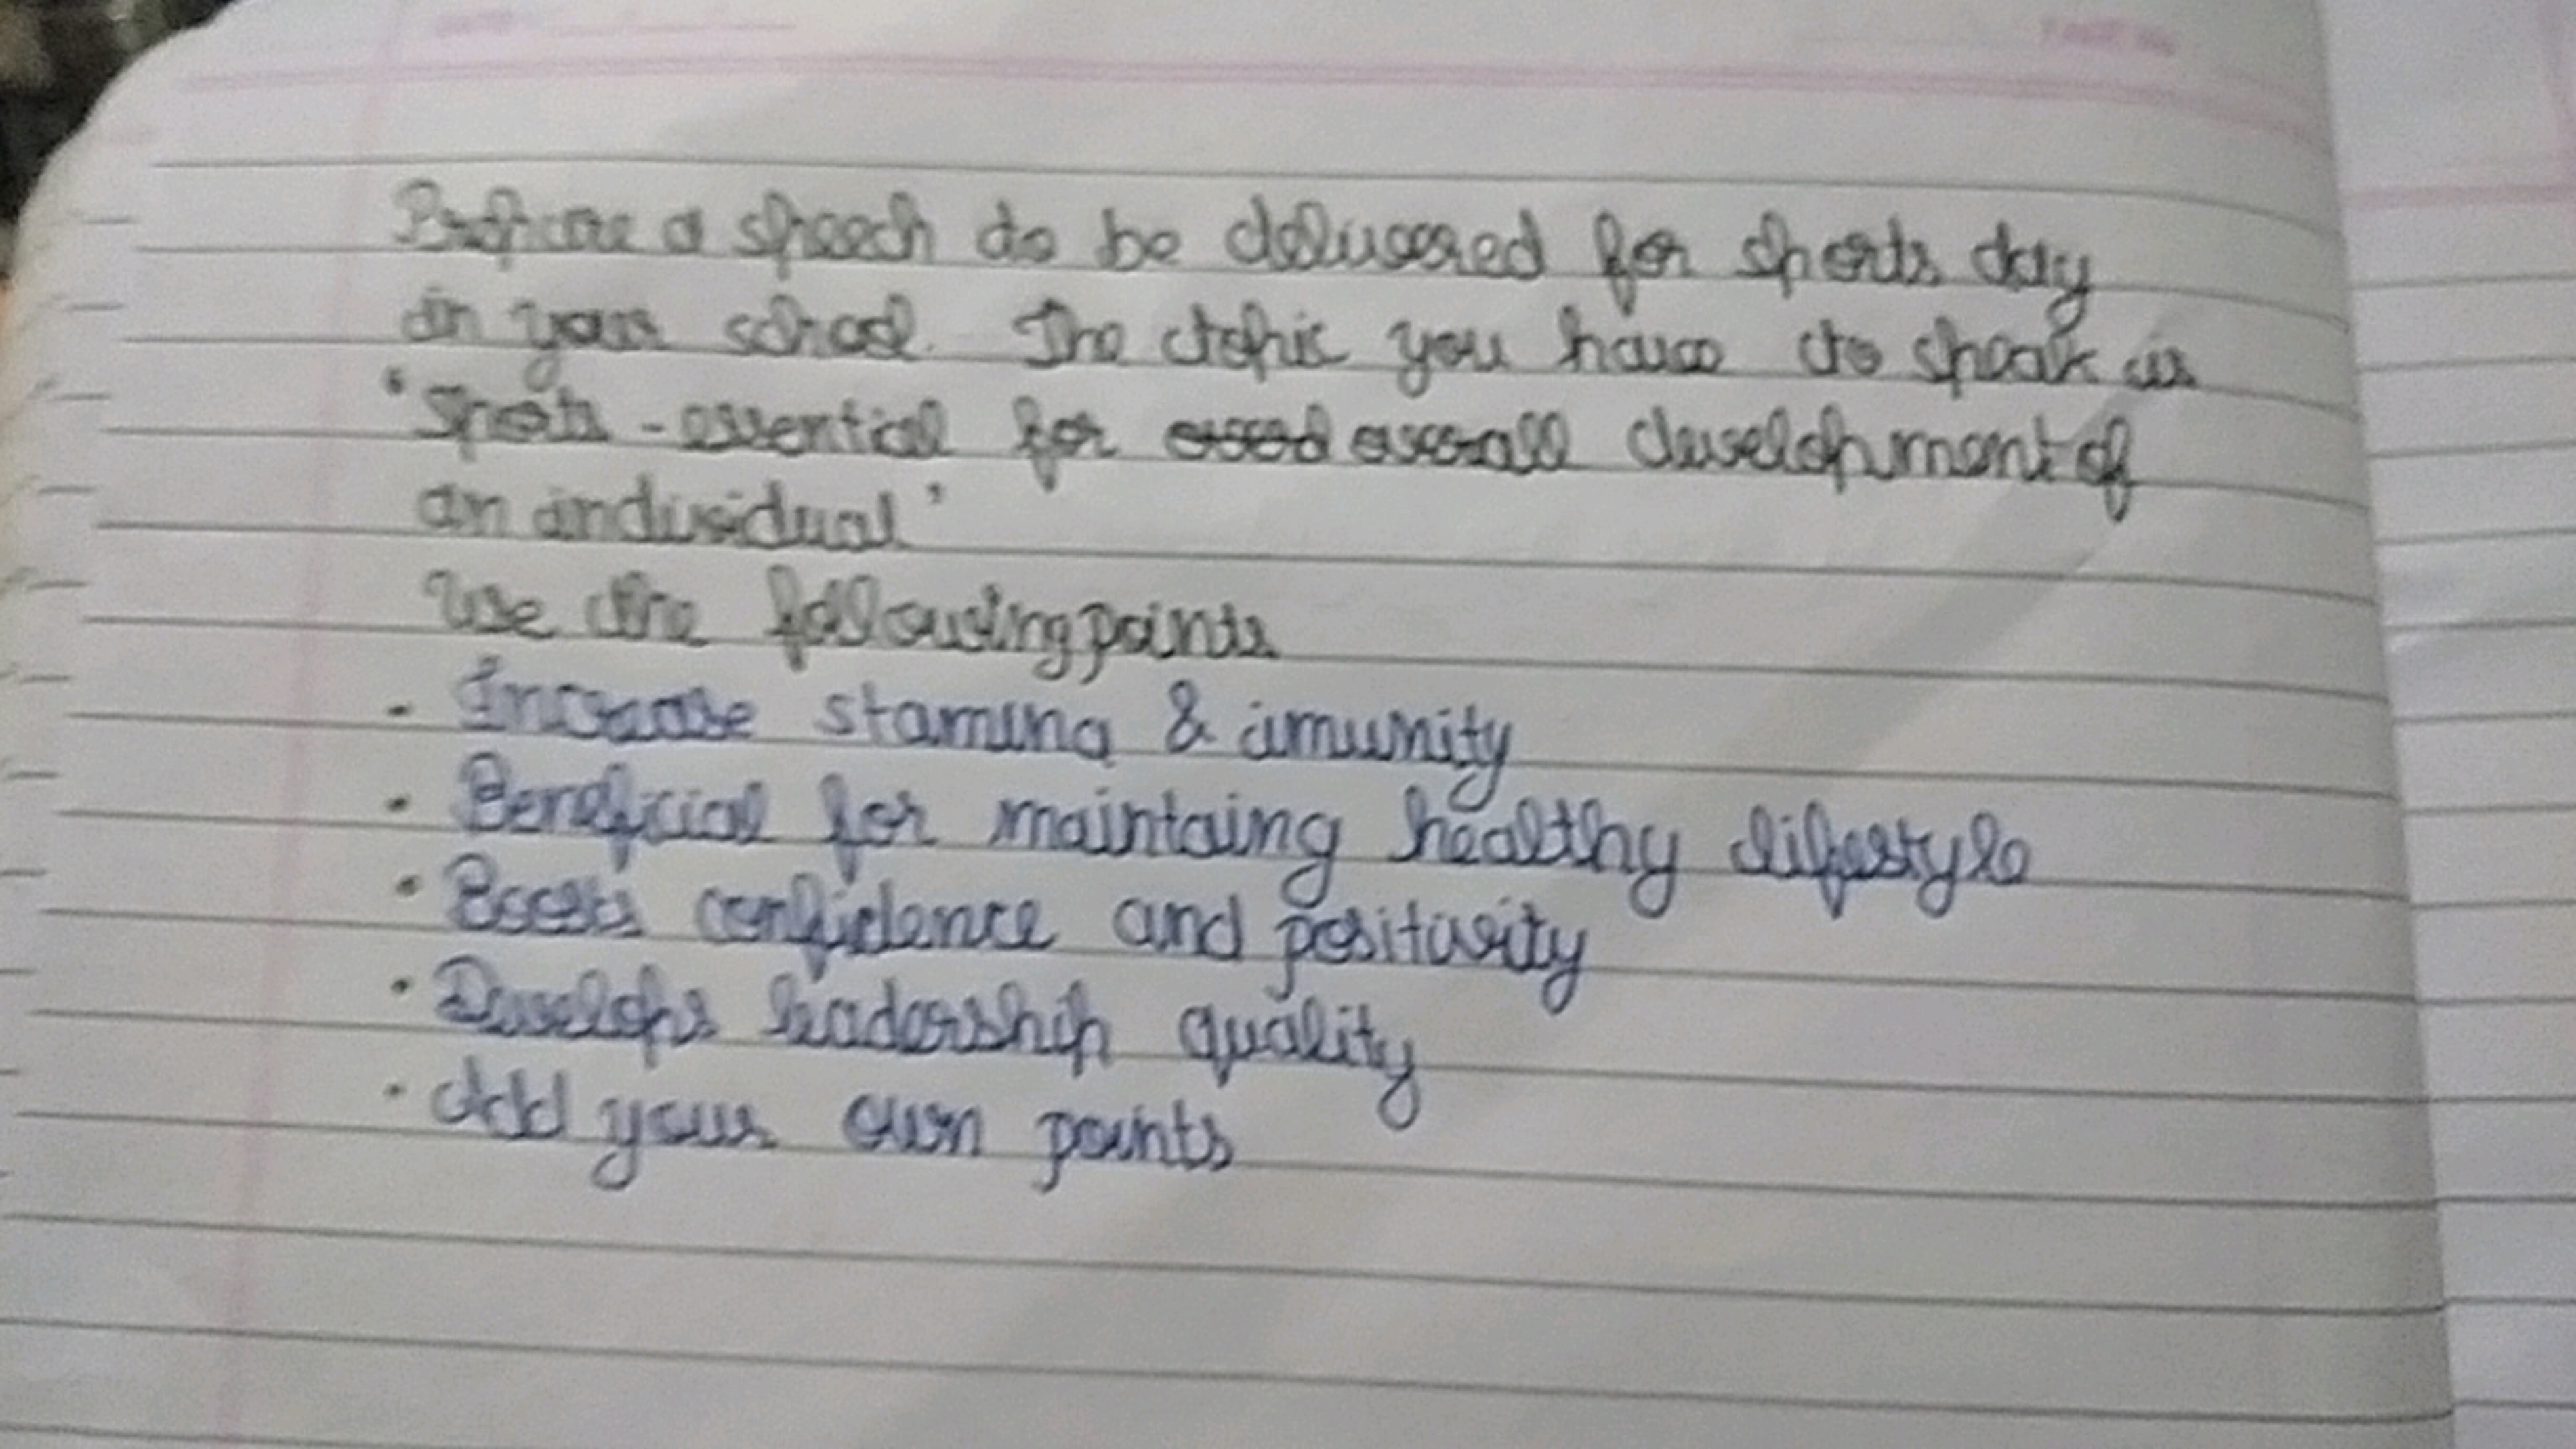 Prepare a speech to be delivered for sports day
in your school. The topic you have to speak is
'Sports - essential for overall development of
an individual'
Use the following points
• Increase stamina & imunity
• Beneficial for maintaing healthy lifestyle
• Boosts confidence and positivity
• Develops leadership quality
• Add your own points